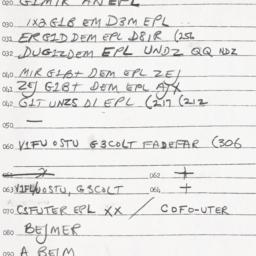 020. G1MIR AN EPL
030. 1X2 G1B EM D3M EPL
031. ERG1D DEM EPL D8IR (256
032. DUG1ZDEM EPL UNDZ QQ NDZ
040. MIR G1B+ DEM EPL ZEJ
041. ZEJ G1B+ DEM EPL AJX
042. G1T UNZS D1 EPL (217 (212
050. —
060. V1FU OSTU G3COLT FADEFAR (306
062. +
063. V1FU/OSTU, G3COLT 064. +
070. CSFUTER EPL XX / COFO-UTER
080. BEJMER
090. A BEIM